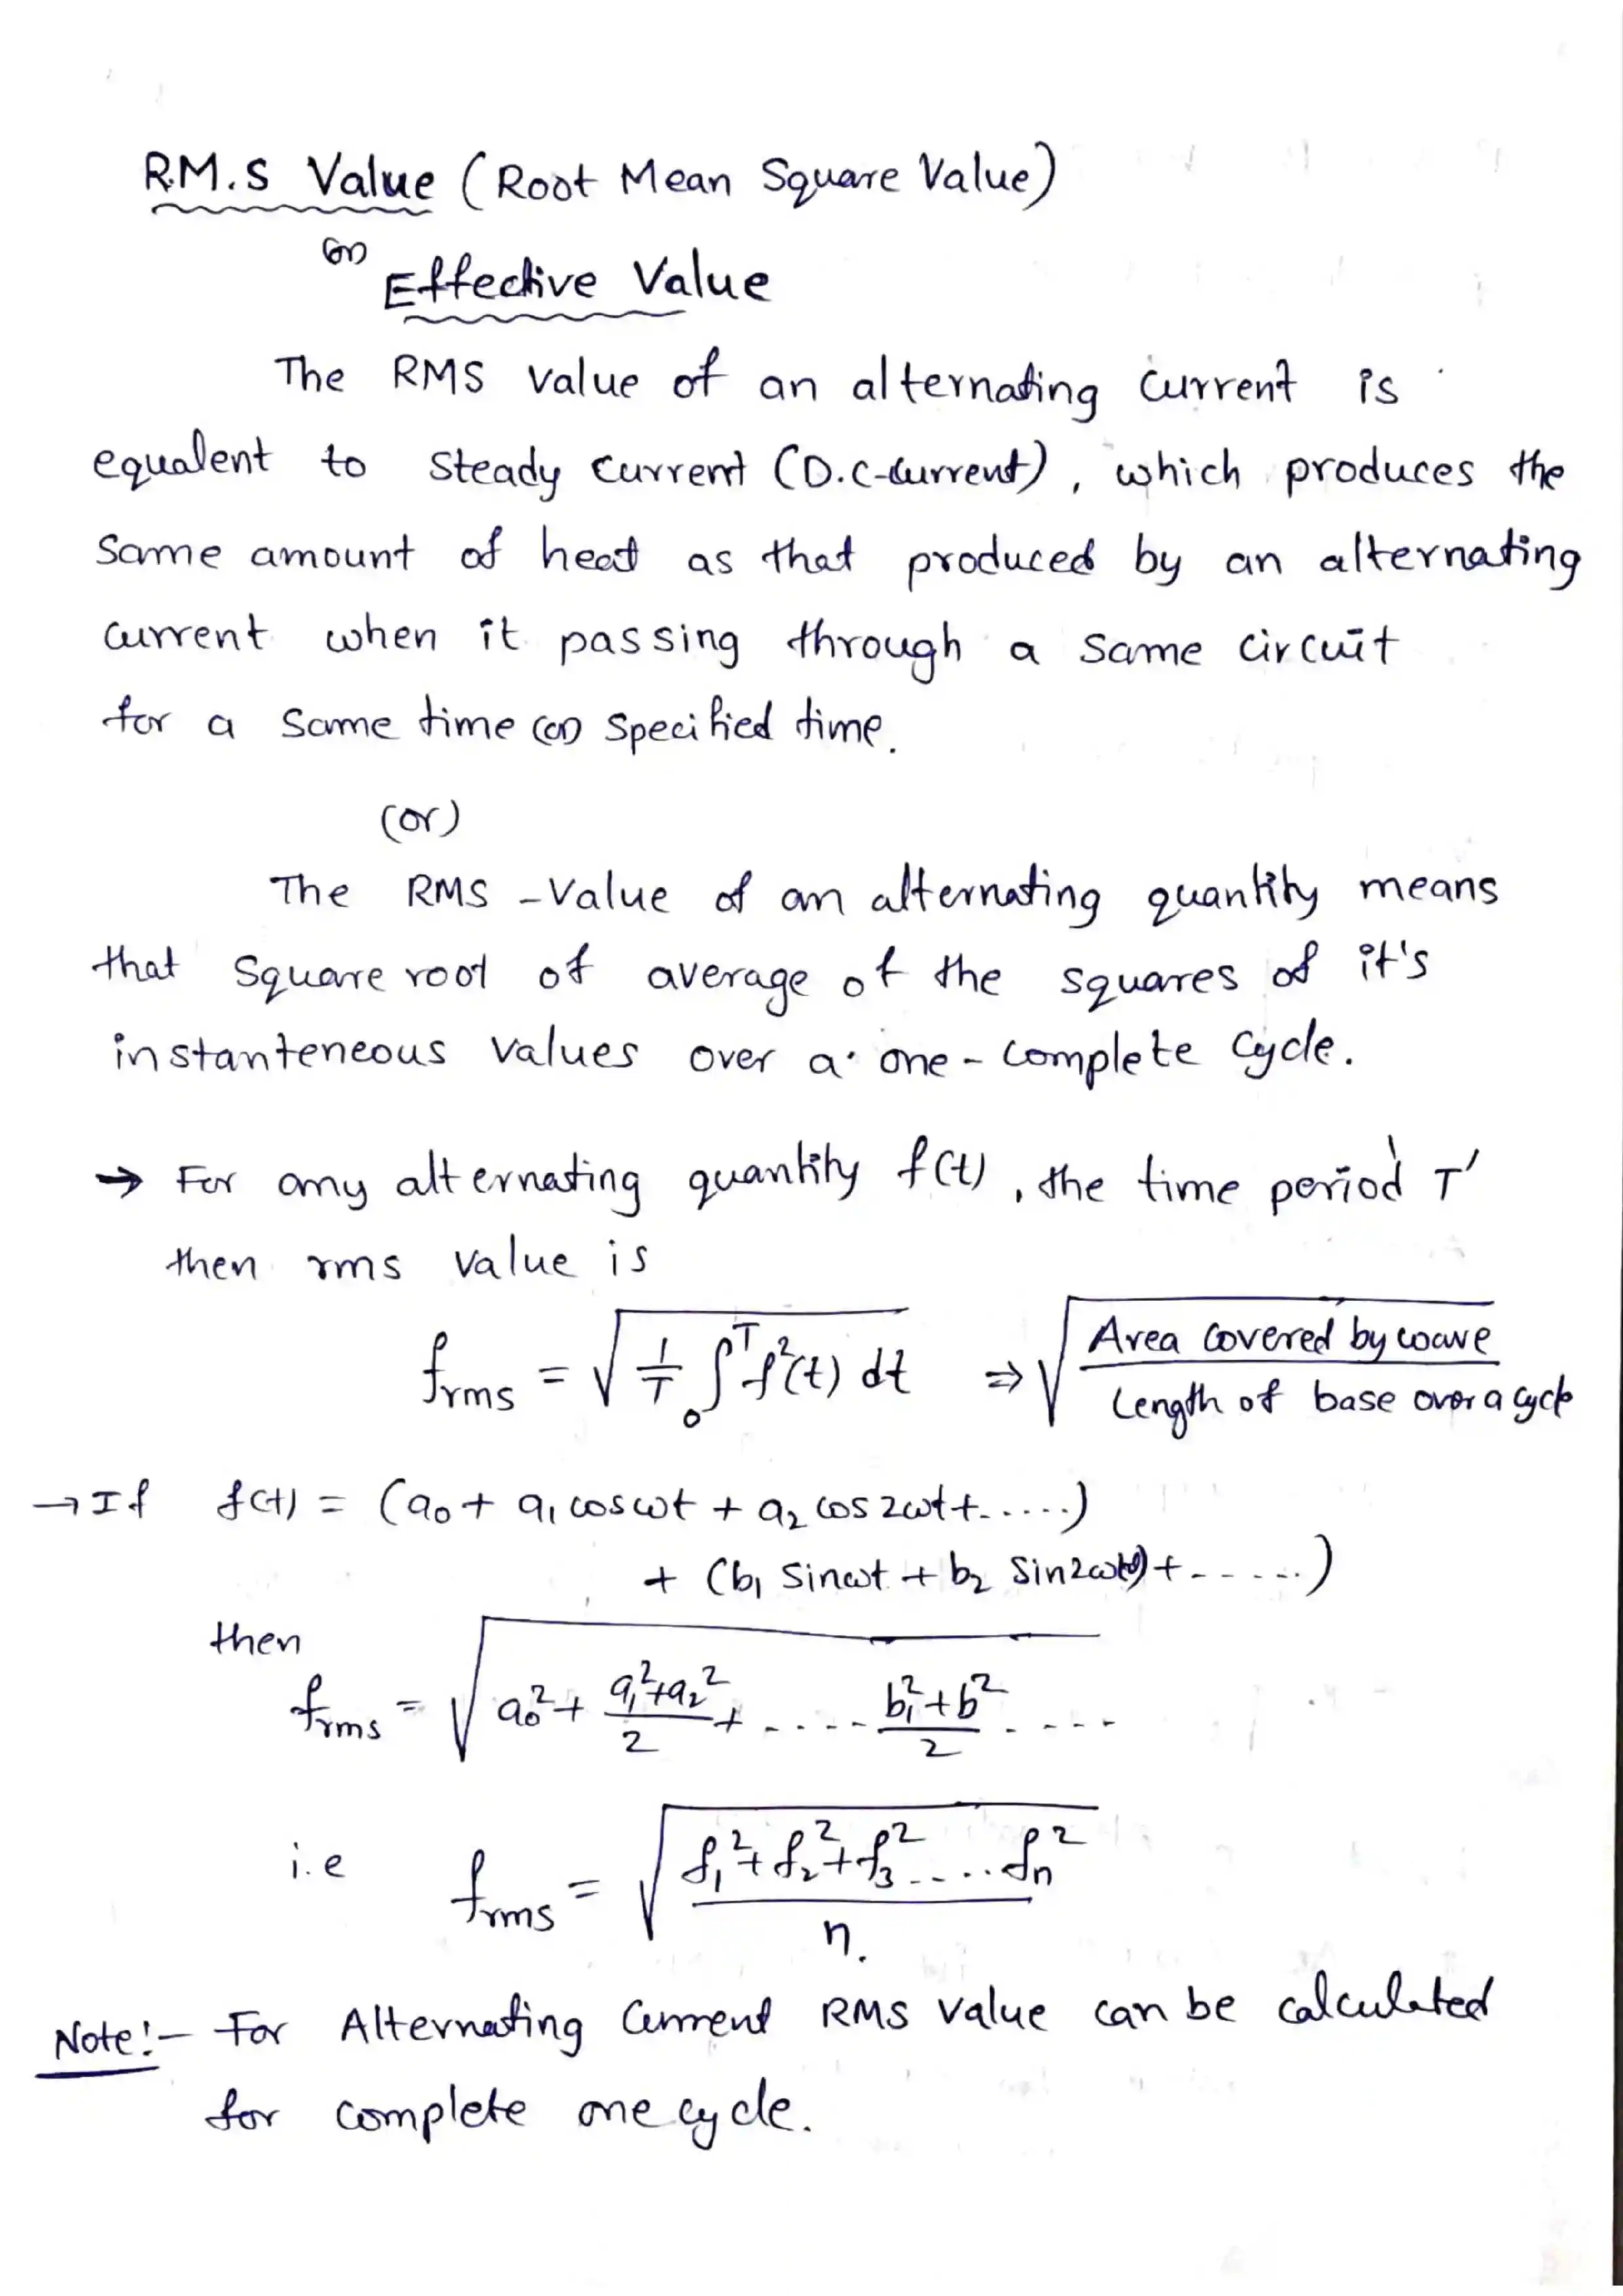 R.M.S Value (Root Mean Square Value)
(or)
Effective Value
The RMS value of an alternating current is
equalent to steady current (D.C-current), which produces the
same amount of heat as that produced by an alternating
current when it passing through a same circuit
for a same time (or) specified time.
(or)
The RMS -Value of an alternating quantity means
that square root of average of the squares of it's
instanteneous values over a one - complete cycle.
→ For any alternating quantity f(t), the time period 'T'
then rms value is
f_rms = √(1/T ∫₀ᵀ f²(t) dt) ⇒ √(Area covered by wave / Length of base over a cycle)
→ If f(t) = (a₀ + a₁ cosωt + a₂ cos 2ωt + ......)
+ (b₁ sinωt + b₂ sin2ωt) + ......)
then
f_rms = √(a₀² + (a₁²+a₂²)/2 + ..... (b₁²+b²)/2 ....
i.e f_rms = √((f₁² + f₂² + f₃² ..... fₙ²) / n.)
Note:- For Alternating Current RMS value can be calculated
for complete one cycle.